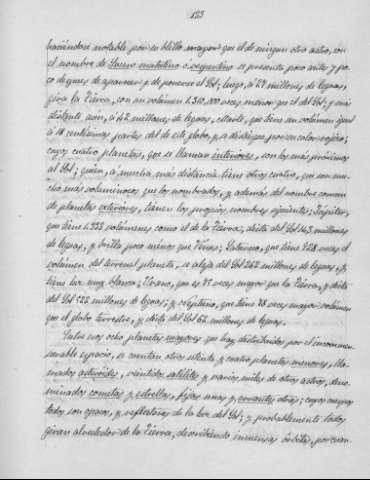 123
haciéndose notable por su brillo mayor que el de ningun otro astro, con
el nombre de Lucero matutino ó vespertino se presenta poco antes y po-
co despues de aparecer y de ponerse el Sol; luego, á 29 millones de leguas,
gira la Tierra, con un volúmen 1.310,000 veces menor que el del Sol; y más
distante aun, á 42 millones de leguas, Marte, que tiene un volúmen igual
á 16 centésimas partes del de este globo, y se distingue por su color rojizo;
cuyos cuatro planetas, que se llaman interiores, son los más próximos
al Sol; giran, á mucha más distancia otros cuatro, que son mu-
cho más voluminosos que los nombrados, y además del nombre comun
de planetas exteriores, tienen los propios nombres siguientes: Júpiter,
que tiene 1.333 volúmenes como el de la Tierra; dista del Sol 143 millones
de leguas, y brilla poco menos que Vénus; Saturno, que tiene 928 veces el
volúmen del terrenal planeta, se aleja del Sol 262 millones de leguas y
tiene luz muy blanca; Urano, que es 75 veces mayor que la Tierra, y dista
del Sol 522 millones de leguas; y Neptuno, que tiene 78 veces mayor volúmen
que el globo terrestre, y dista del Sol 62 millones de leguas.
Entre los ocho planetas mayores que hay distribuidos por el inconmen-
surable espacio, se cuentan otros setenta y cuatro planetas menores, lla-
mados asteróides, veintidos satélites y varios miles de otros astros, deno-
minados cometas y estrellas, fijas unas y errantes otras; cuyos cuerpos
todos son opacos, y reflectores de la luz del Sol; y probablemente todos
giran alrededor de la Tierra, describiendo inmensas órbitas, por cuan-